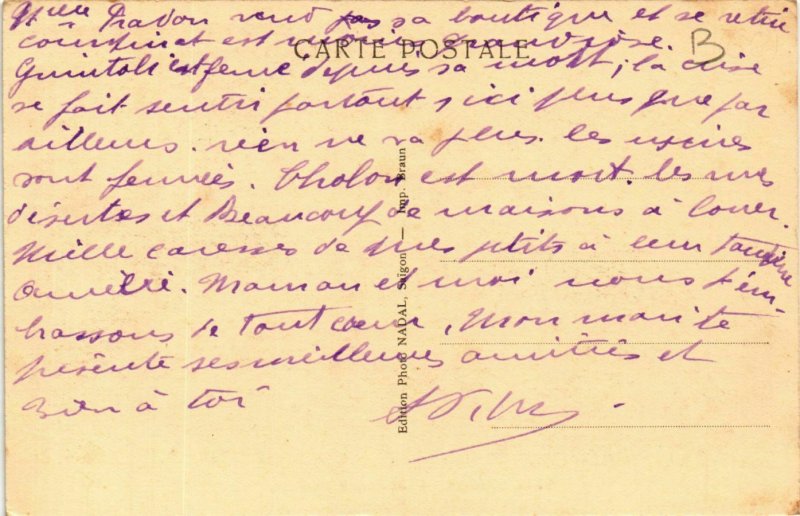 Mme Pradon vend pas sa boutique et se retire
est
CARTE POSTALE
B
est fermé depuis sa mort ; la crise
se fait sentir partout, ici plus que par
ailleurs. rien ne va plus. les usines
sont fermées. Cholon est mort. les rues
désertes et Beaucoup de maisons à louer.
Mille caresses de mes petits à leur
Maman et moi nous t'em-
brassons de tout coeur, Mon mari te
présente ses meilleures amitiés et
Bien à toi
Edition Photo NADAL, Saigon — Imp. Braun